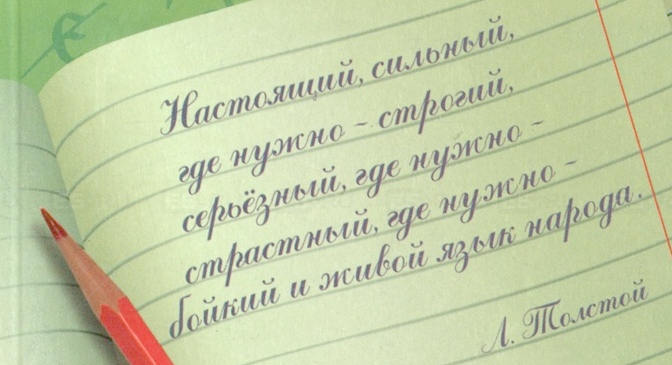 Настоящий, сильный,
где нужно - строгий,
серьёзный, где нужно -
страстный, где нужно -
бойкий и живой язык народа.
Л. Толстой